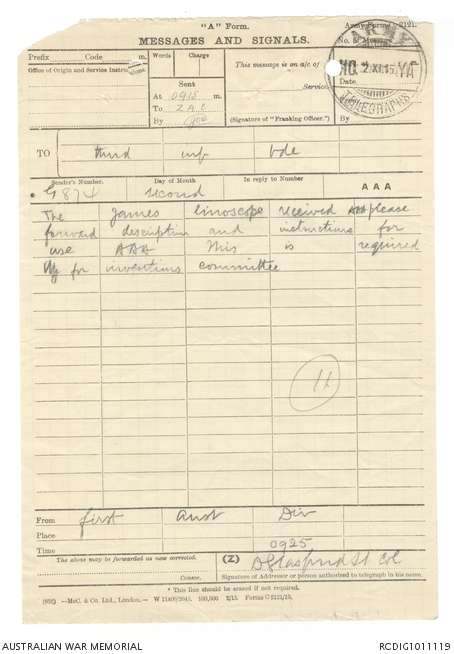 "A" Form. Army Form C 2121.
MESSAGES AND SIGNALS. No. of Message
Prefix Code m. Words Charge This message is on a/c of
Office of Origin and Service Instructions.
Sent
At 0915 m. Service.
To ZAC
By (Signature of "Franking Officer.") By
ARMY
HQ 2.XI.15 YA
TELEGRAPHS
Date
TO third inf bde
Sender's Number. Day of Month In reply to Number AAA
G 874 second
The James linoscope received AAA please
forward description and instructions for
use AAA This is required
by for inventions committee
11
From first Aust Div
Place
Time 0925
The above may be forwarded as now corrected. (Z) St Col
Censor. Signature of Addressor or person authorised to telegraph in his name.
* This line should be erased if not required.
—McC. & Co. Ltd., London.— 100,000 2/15 Forms C 2121/10.
AUSTRALIAN WAR MEMORIAL RCDIG1011119